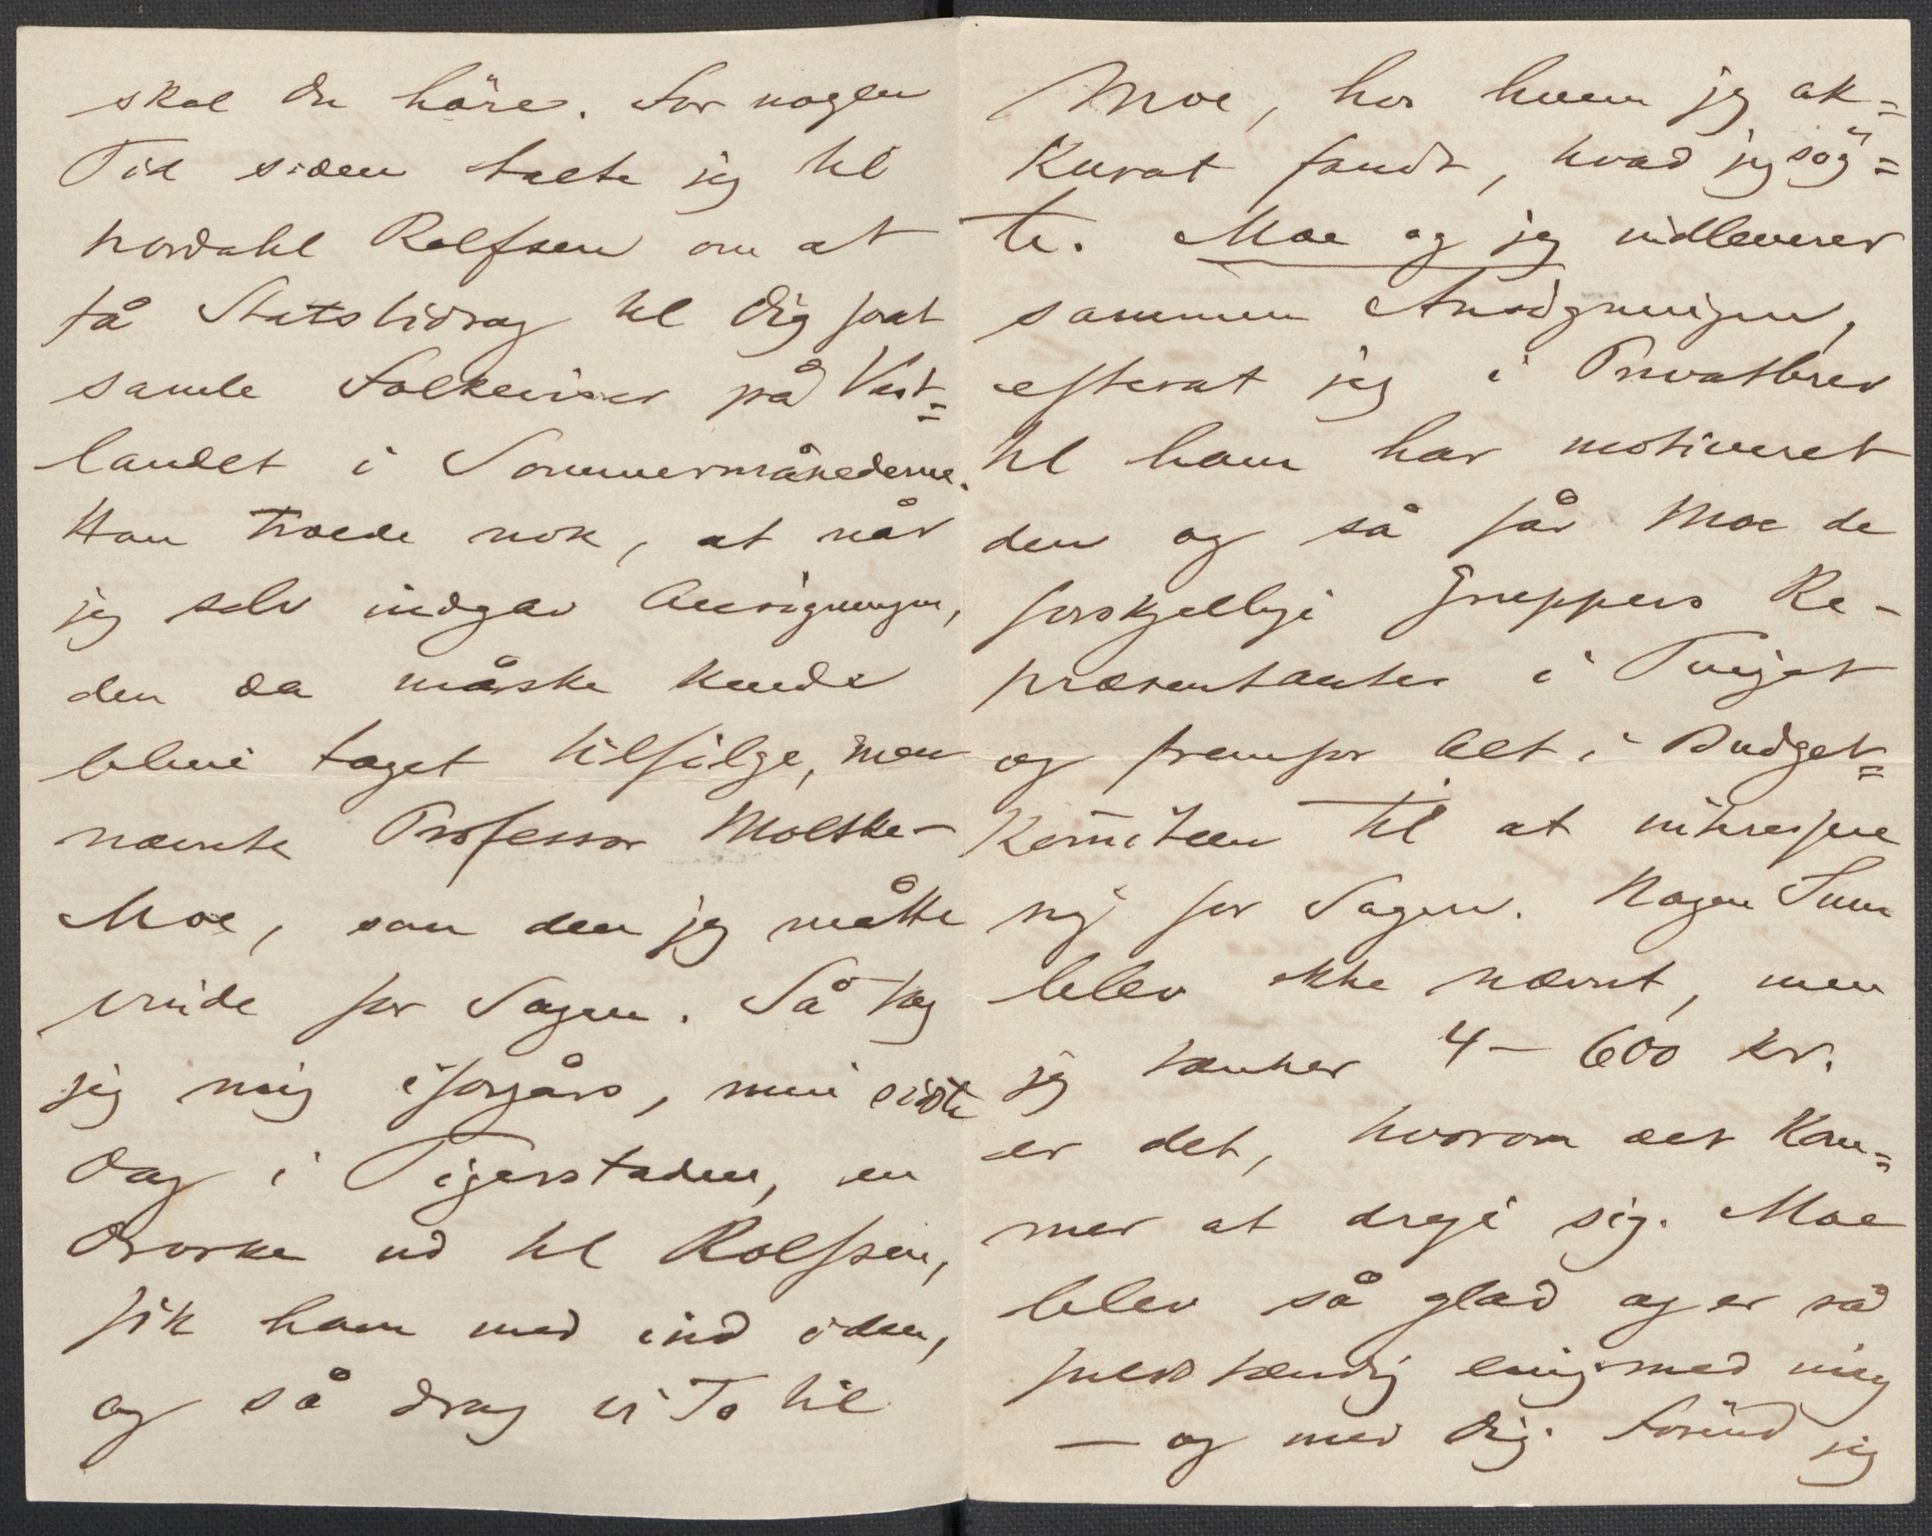 skal du høre. For nogen
Tid siden talte jeg til
Nordahl Rolfsen om at
få Statsbidrag til Dig forat
samle Folkeviser på Vest=
landet i Sommermånederne.
Han troede nok, at når
jeg selv indgav Ansøgningen,
den da måske kunde
blive taget tilfølge, men
nævnte Professor Moltke-
Moe, som den jeg måtte
vinde for Sagen. Så tog
jeg mig iforgårs, min sidste
Dag i Tigerstaden, en
Droske ud til Rolfsen,
fik ham med ind iden,
og så drog vi To til
Moe, hos hvem jeg ak=
kurat fandt, hvad jeg søg=
te. Moe og jeg indleverer
sammen Ansøgningen,
efterat jeg i Privatbrev
til ham har motiveret
den og så får Moe de
forskjellige Gruppers Re-
præsentanter i Tinget
og fremfor Alt i Budget=
komiteen til at interessere
sig for Sagen. Nogen Sum
blev ikke nævnt, men
jeg tænker 4 - 600 Kr.
er det, hvorom det kom=
mer at dreje sig. Moe
blev så glad og er så
fuldstændig enig med mig
- og med Dig. Forund jeg